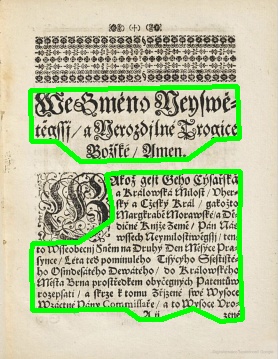 We Gméno Neyswě-
těgssj / a Nerozdjlné Trogice
Božské / Amen.
Akož gest Geho Cýsařská
a Králowská Milost / Vher-
ský a Cžeský Král / gakožto
Margkrabě Morawské / a Dě-
dičné Kníže Země / Pán Náš
to Wsseobecnj Sněm na Druhý Den Měsýce Pra-
synce / Léta teď pominulého Tisýcyho Ssestistě-
ho Osmdesátého Dewátého / do Králowského
Města Brna prostředkem obyčegných Patentůw
rozepsati / a skrze k tomu Zřjzené swé Wysoce
Wzáctné Pány Commissaře / a to Wysoce Vro-
A ij zené